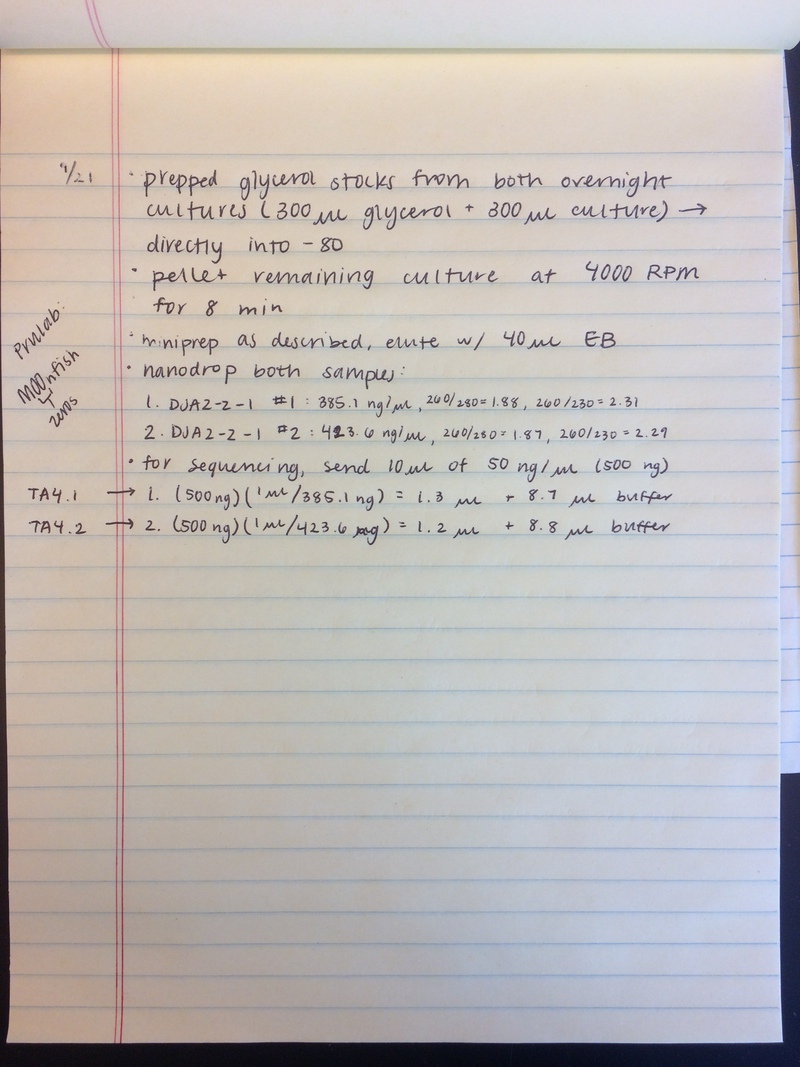 9/21 • prepped glycerol stocks from both overnight
cultures (300 µl glycerol + 300 µl culture) →
directly into -80
• pellet remaining culture at 4000 RPM
for 8 min
• miniprep as described, elute w/ 40 µl EB
• nanodrop both samples:
1. DJA2-2-1 #1 : 385.1 ng/µl, 260/280 = 1.88, 260/230 = 2.31
2. DJA2-2-1 #2 : 423.6 ng/µl, 260/280 = 1.87, 260/230 = 2.29
• for sequencing, send 10 µl of 50 ng/µl (500 ng)
TA4.1 → 1. (500 ng)(1 µl/385.1 ng) = 1.3 µl + 8.7 µl buffer
TA4.2 → 2. (500 ng)(1 µl/423.6 ng) = 1.2 µl + 8.8 µl buffer
M00nfish
zeros